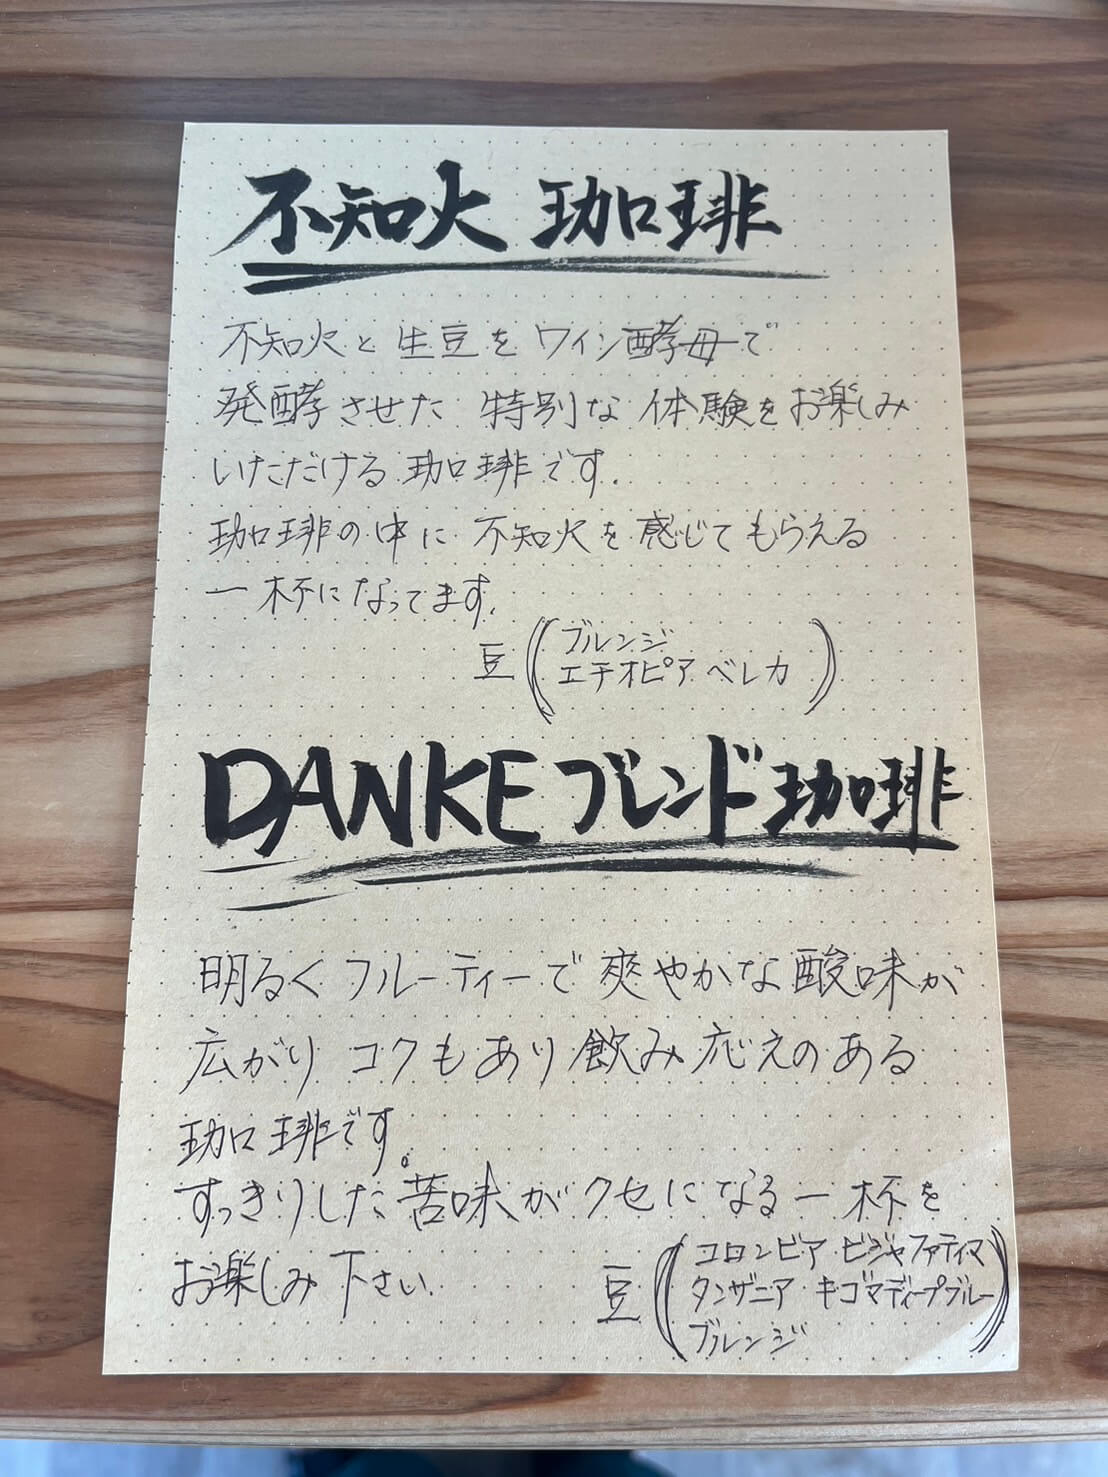 不知火 珈琲
不知火と生豆をワイン酵母で
発酵させた 特別な 体験をお楽しみ
いただける 珈琲です.
珈琲の中に 不知火を感じてもらえる
一杯になってます.
豆(ブルンジ
エチオピア ベレカ)
DANKEブレンド珈琲
明るく フルーティーで爽やかな酸味が
広がり コクもあり飲み応えのある
珈琲です。
すっきりした苦味がクセになる一杯を
お楽しみ下さい.
豆(コロンビア・ビジャファティマ
タンザニア・キゴマディープブルー
ブルンジ)